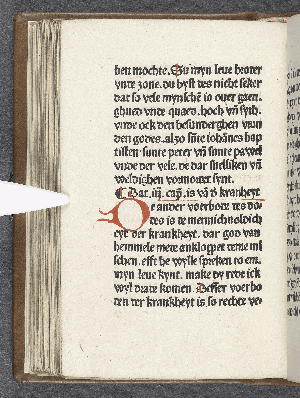 ben mochte. Su myn leue broter
vnte zone. du byst tes nicht seker
dat so vele mynschē io ouer gaen.
ghued vnde quaed. hoch vn̄ syth.
vnde ock den besunderghen vrun
den godes. alzo sūte iohānes bap
tisten sunte peter vn̄ sunte pawel
vnde der vele. de dar stedliken vn̄
weldichen vormoret synt.
Dat .iij. cap̄. is vā d̓ krankheyt
De ander vorbote tes do
tes is te mennichuoldich
eyt der krankheyt. dar god van
hemmele mete anklopet teme mī
schen. efft he wylle spreken to em.
myn leue kynt. make dy rede ick
wyl drate komen. Desser vorbo
ten ter krankheyt is so rechte ve